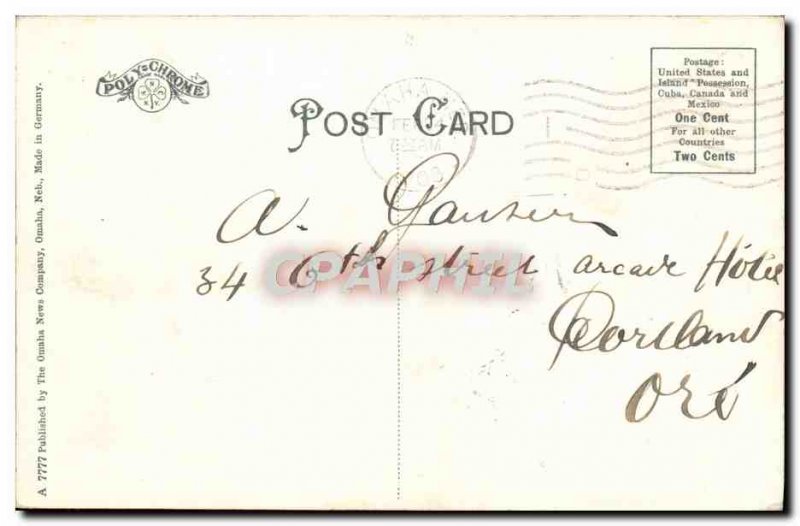 POLY-CHROME
POST CARD
Postage:
United States and
Island Possession,
Cuba, Canada and
Mexico
One Cent
For all other
Countries
Two Cents
A.
34 6th street arcade Hotel
Portland
Ore
CPAPHIL
A 7777 Published by The Omaha News Company, Omaha, Neb., Made in Germany.